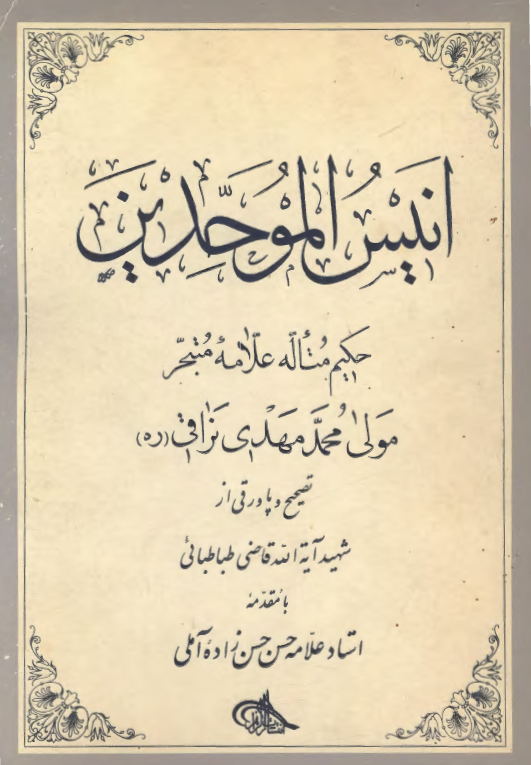 انیسُ الموُحَّدِین
حکیم متأله علّامهٔ مُتبحّر
مولیٰ محمّد مَهْدی نراقی (ره)
تصحیح و پاورقی از
شهید آیة الله قاضی طباطبائی
با مُقدّمهٔ
استاد علّامه حسن حسن زادهٔ آملی